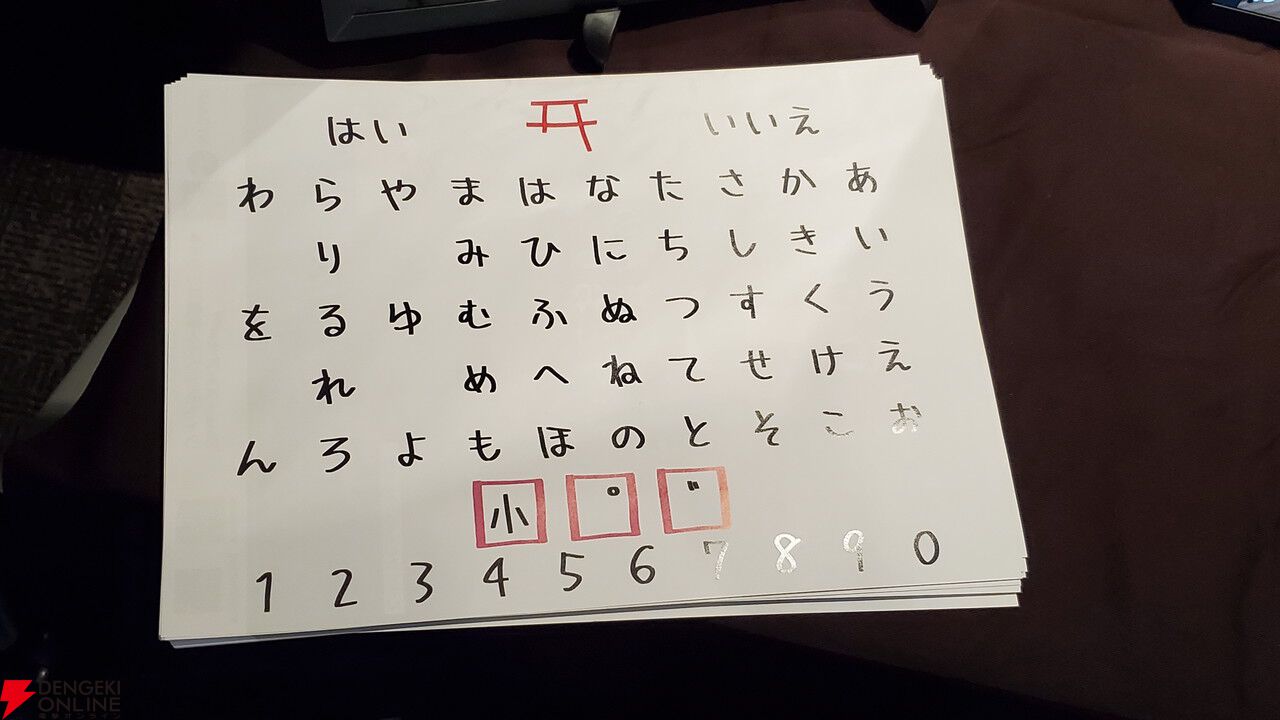 はい いいえ
わ ら や ま は な た さ か あ
り み ひ に ち し き い
を る ゆ む ふ ぬ つ す く う
れ め へ ね て せ け え
ん ろ よ も ほ の と そ こ お
小 ゜ ゛
1 2 3 4 5 6 7 8 9 0
DENGEKI
ONLINE
電撃オンライン